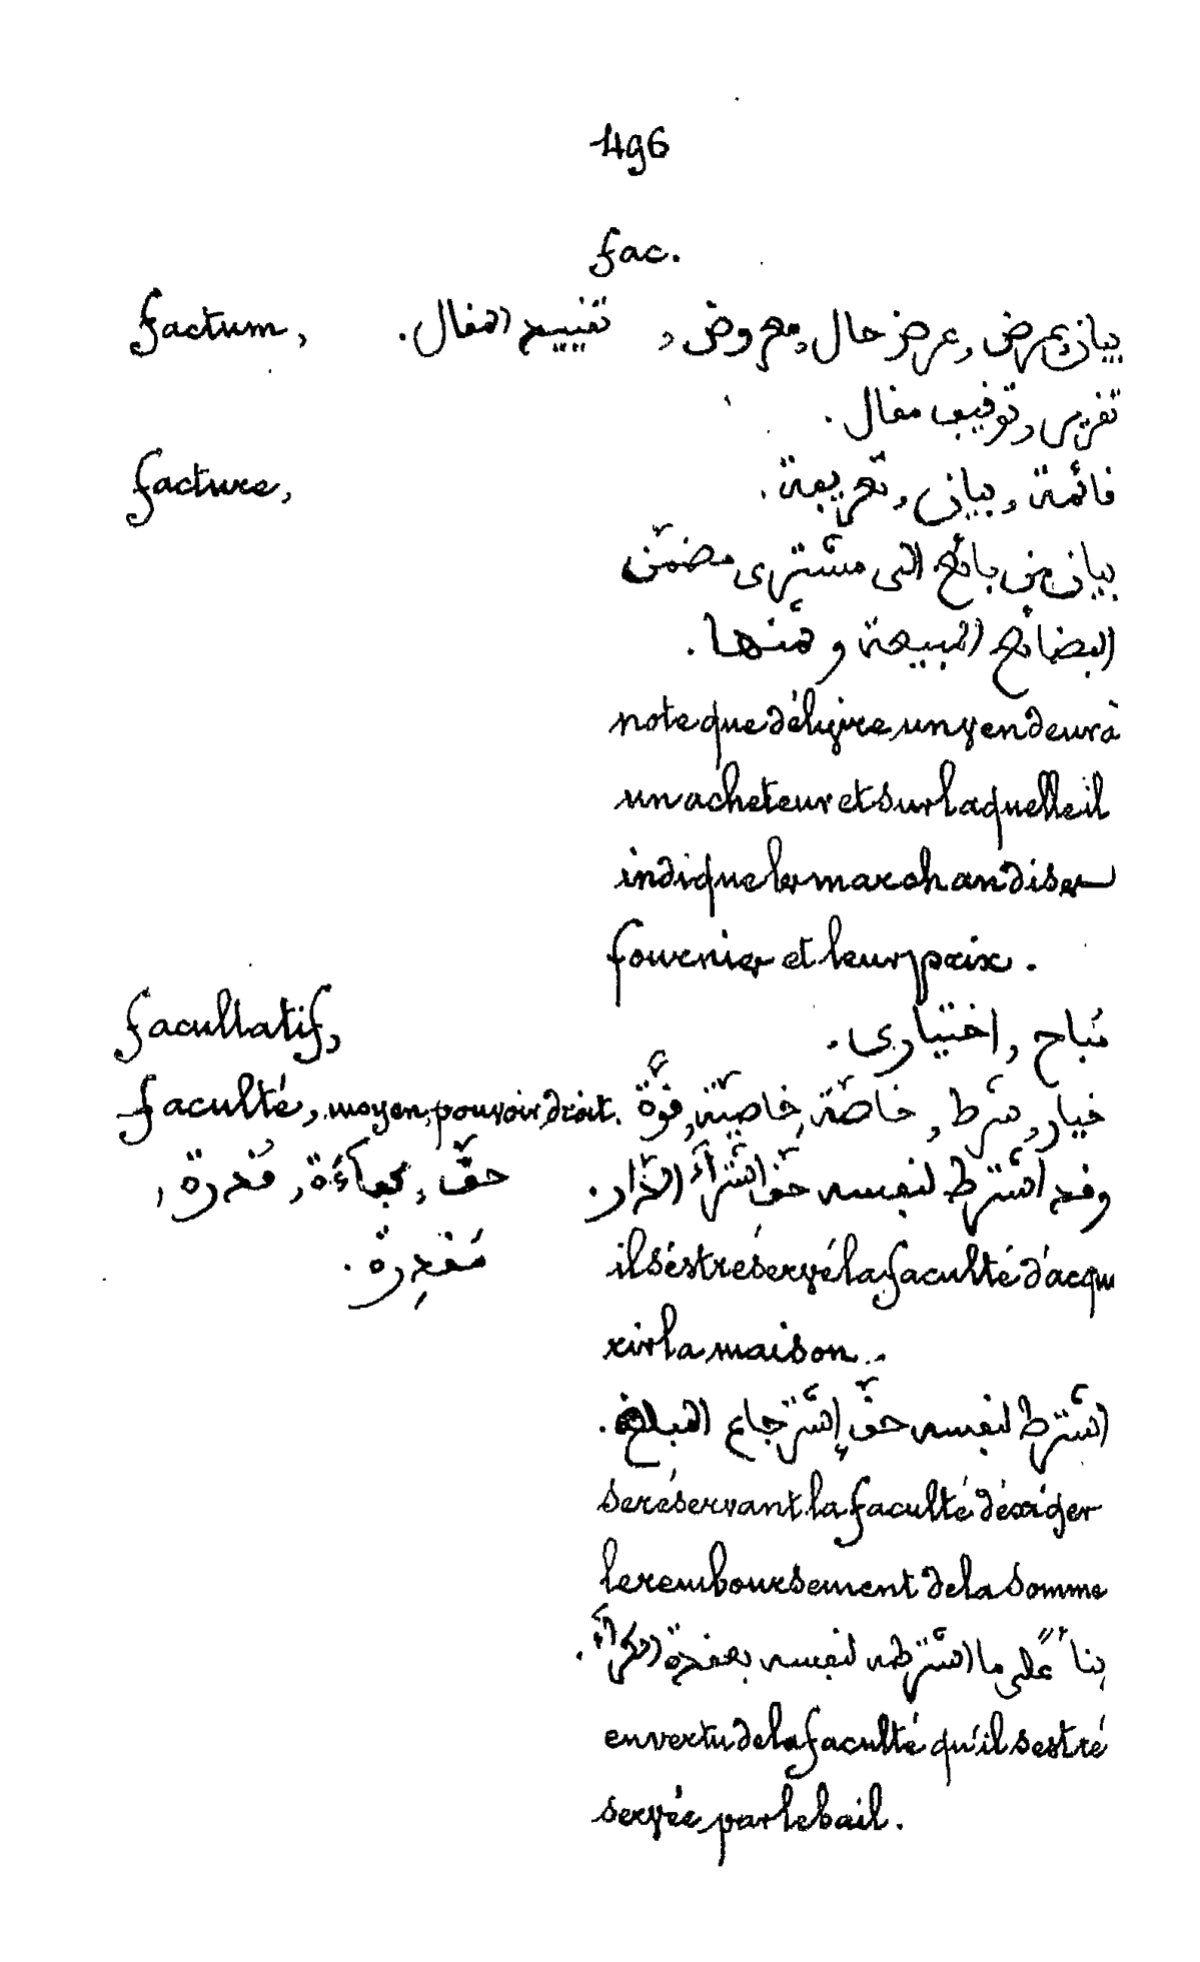 496
fac.
factum, بيان بعرض, عرض حال, معروض, تقييد المقال.
تقرير, توقيف مقال.
facture, قائمة, بيان, تعريفة.
بيان من بائع الى مشترى مضمّن
البضائع المبيعة و ثمنها.
note que délivre un vendeur à
un acheteur et sur laquelle il
indique les marchandises
fournies et leur prix.
facultatif, مُباح, اختيارى.
faculté, moyen, pouvoir, droit. خيار, شرط, خاصّة, خاصيّة, قوّة
حقّ, كفاءَة, قُدرة,
مَقدِرة.
وقد اشترط لنفسه حقّ اشتراَء الدّار.
il s'est réservé la faculté d'acqu
rir la maison..
اشترط لنفسه حقّ إسترجاع المبلغ.
se réservant la faculté d'éxiger
le remboursement de la somme
بنأً على ما اشترطه لنفسه بعقدة الكراَء.
en vertu de la faculté qu'il s'est ré
servée par le bail.